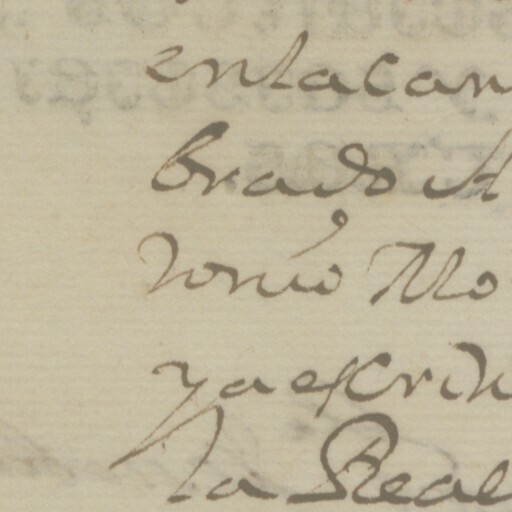 en la can
brado A
tonio Mo
ya escriv
la Real